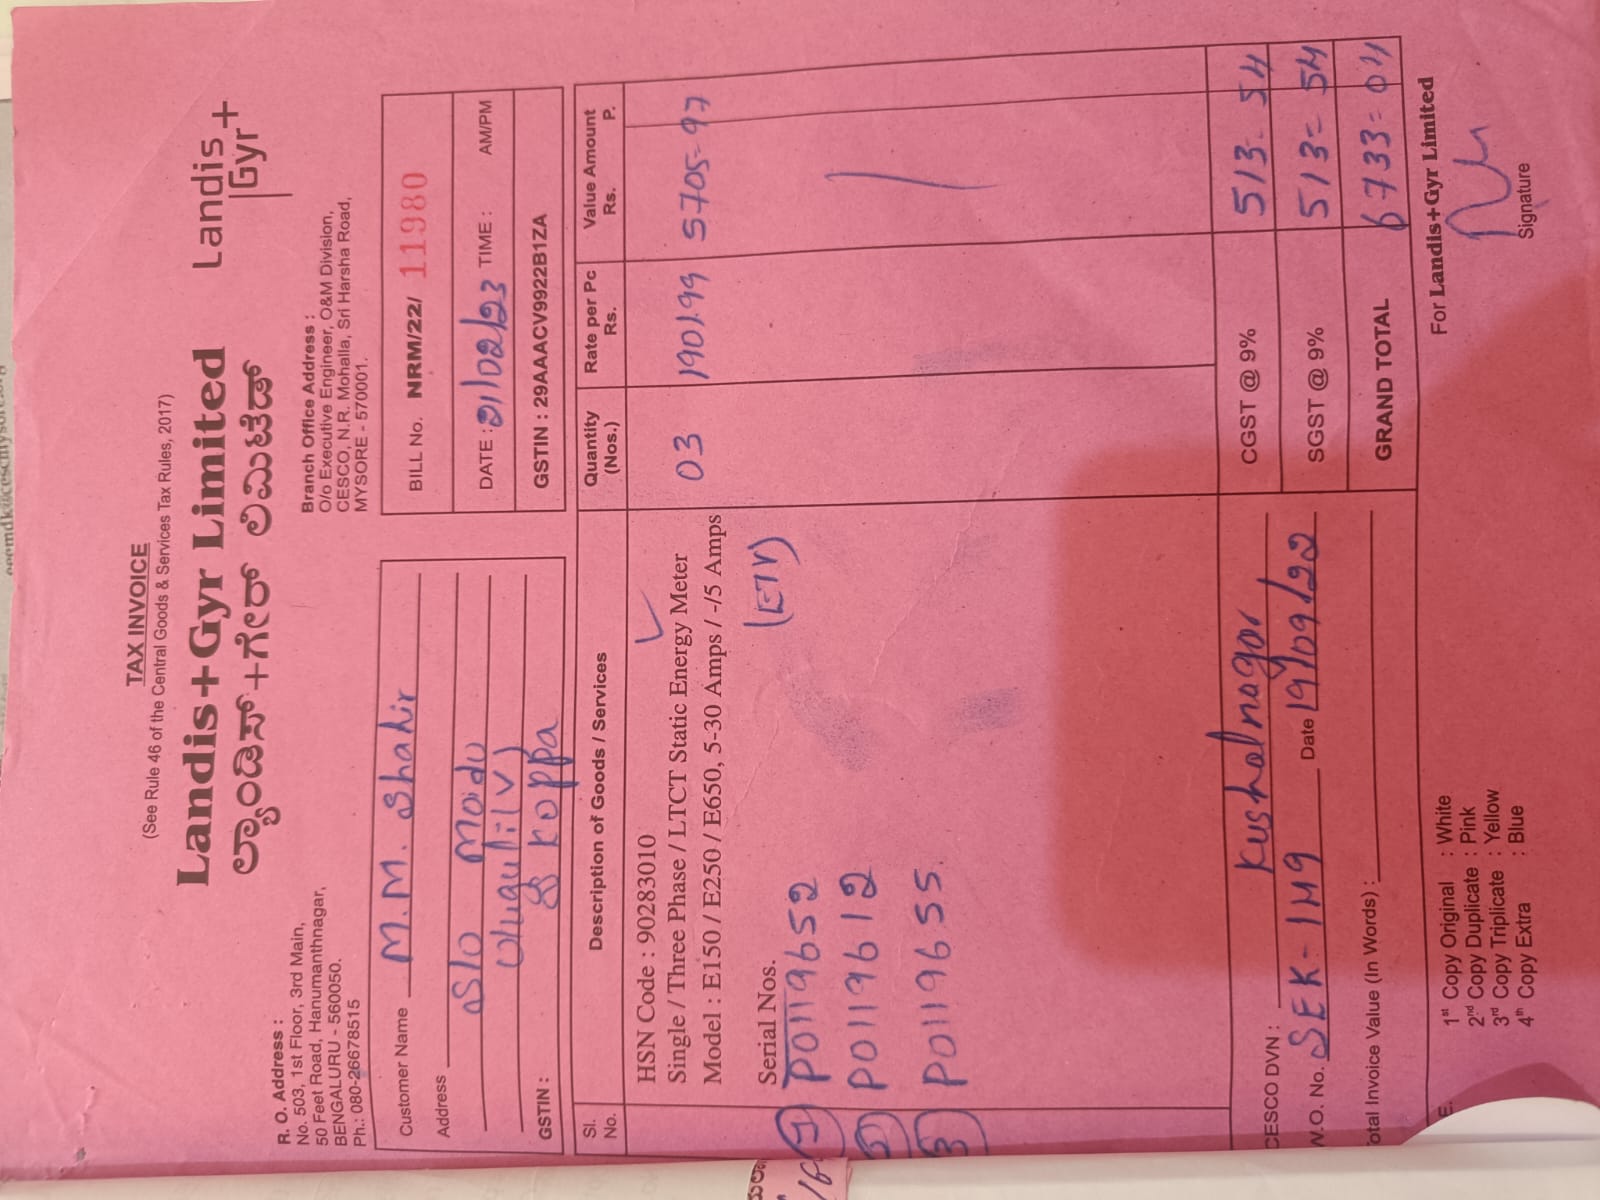 TAX INVOICE
(See Rule 46 of the Central Goods & Services Tax Rules, 2017)
Landis+Gyr Limited
ಲ್ಯಾಂಡಿಸ್+ಗೇರ್ ಲಿಮಿಟೆಡ್
Landis+
Gyr
R. O. Address :
No. 503, 1st Floor, 3rd Main,
50 Feet Road, Hanumanthnagar,
BENGALURU - 560050.
Ph.: 080-26678515
Branch Office Address :
O/o Executive Engineer, O&M Division,
CESCO, N.R. Mohalla, Sri Harsha Road,
MYSORE - 570001.
Customer Name M.M. Shahir
Address S/o Moidu
Koppa
GSTIN :
BILL No. NRM/22/ 11980
DATE : 21/02/23 TIME : AM/PM
GSTIN : 29AAACV9922B1ZA
Sl. No. Description of Goods / Services Quantity (Nos.) Rate per Pc Rs. Value Amount Rs. P.
HSN Code : 90283010
Single / Three Phase / LTCT Static Energy Meter 03 1901.99 5705=97
Model : E150 / E250 / E650, 5-30 Amps / -/5 Amps
Serial Nos.
1) P0119652
2) P0119612
3) P0119655
CESCO DVN : Kushalnagar CGST @ 9% 513=54
W.O. No. SEK-149 Date 19/09/22 SGST @ 9% 513=54
Total Invoice Value (In Words) : GRAND TOTAL 6733=04
E.
1st Copy Original : White
2nd Copy Duplicate : Pink
3rd Copy Triplicate : Yellow
4th Copy Extra : Blue
For Landis+Gyr Limited
Signature